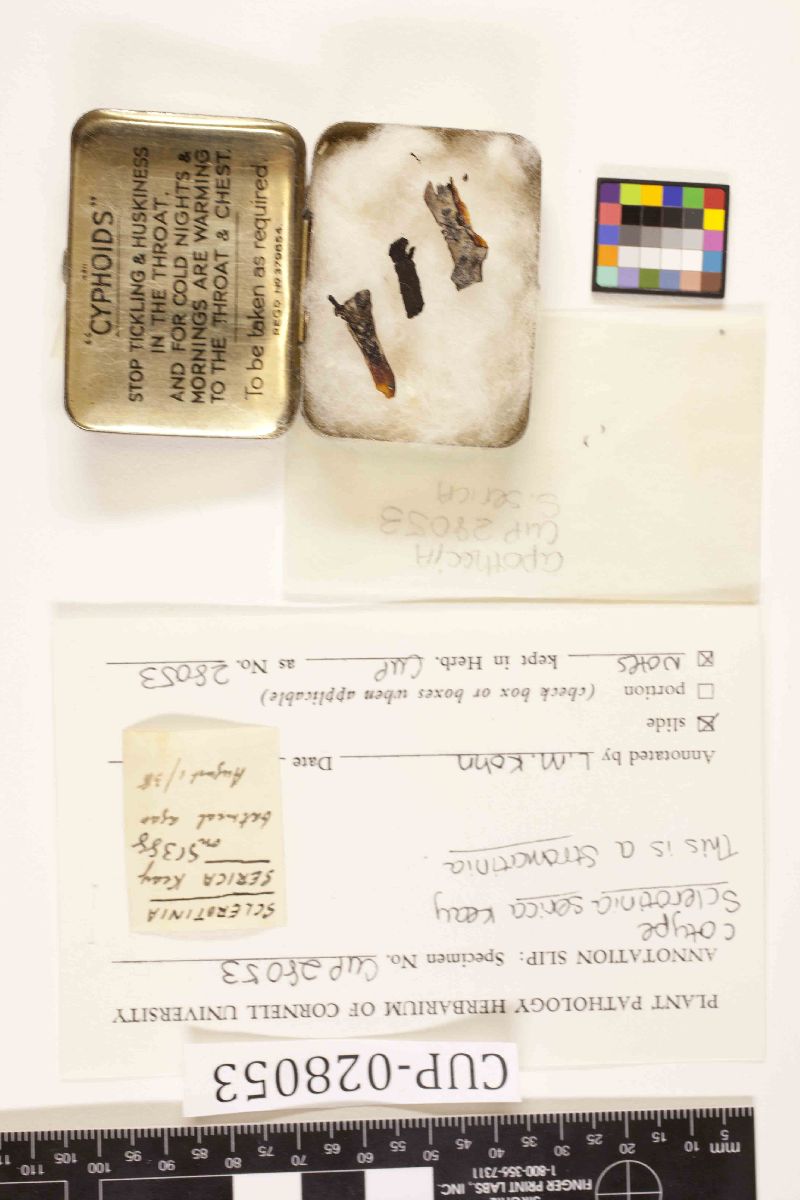 "CYPHOIDS"
STOP TICKLING & HUSKINESS
IN THE THROAT,
AND FOR COLD NIGHTS &
MORNINGS ARE WARMING
TO THE THROAT & CHEST.
To be taken as required.
REGD. NO 379654.
apothecia
CUP 28053
S. serica
PLANT PATHOLOGY HERBARIUM OF CORNELL UNIVERSITY
ANNOTATION SLIP: Specimen No. CUP 28053
cotype
Sclerotinia serica Keay
This is a Stromatinia.
Annotated by L.M. Kohn Date
slide
portion (check box or boxes when applicable)
notes kept in Herb. CUP as No. 28053
SCLEROTINIA
SERICA Keay
on SC388
oatmeal agar
August 1/38
CUP-028053
mm 5 10 15 20 25 30 35 40 45 50 55 60 65 70 75 80 85 90 95 100 105 110
FINGER PRINT LABS, INC.
1-800-356-7311